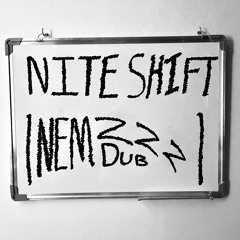 NITE SHIFT
|NEMZZZ|
DUB